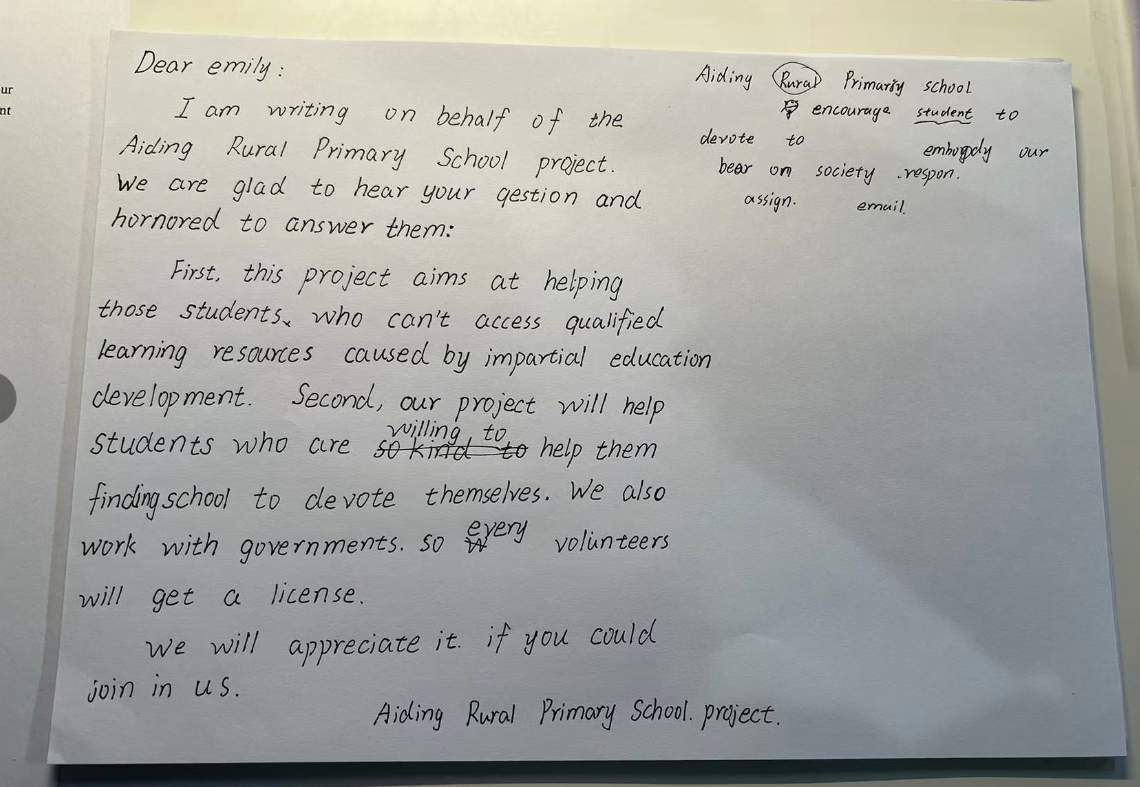 ur
nt
Dear emily:
I am writing on behalf of the
Aiding Rural Primary School project.
We are glad to hear your qestion and
hornored to answer them:
First, this project aims at helping
those students, who can't access qualified
learning resources caused by impartial education
development. Second, our project will help
students who are willing to help them
finding school to devote themselves. We also
work with governments. so every volunteers
will get a license.
We will appreciate it. if you could
join in us.
Aiding Rural Primary School. project.
Aiding Rural Primary school
encourage student to
devote to our
bear on society .respon.
assign. email.